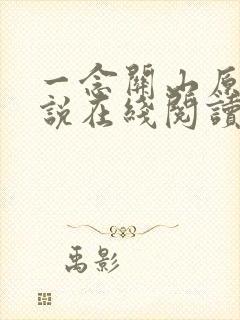 一念關山原
說在綫閱讀
禹影